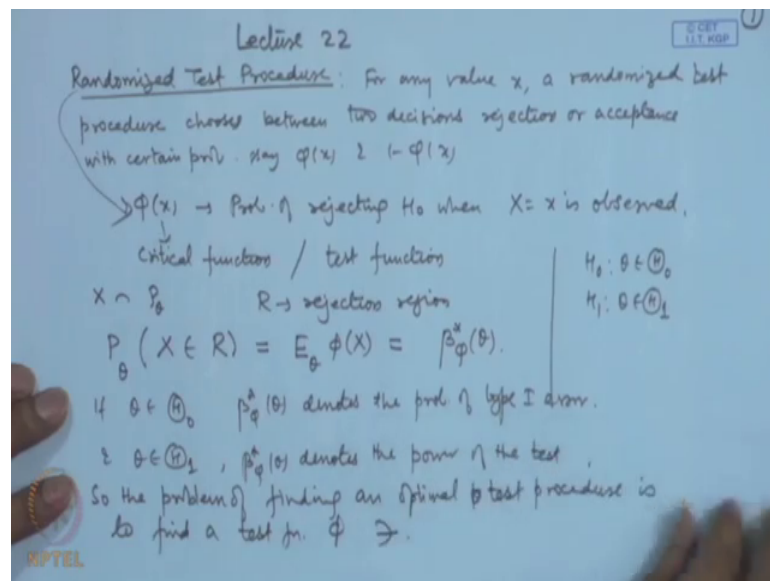 Lecture 22
© CET
I.I.T. KGP
1
Randomized Test Procedure: For any value x, a randomized test
procedure chooses between two decisions rejection or acceptance
with certain prob. say φ(x) & 1-φ(x)
φ(x) → Prob. of rejecting H₀ when X=x is observed.
Critical function / test function
H₀: θ∈Θ₀
X ~ P_θ R → rejection region
H₁: θ∈Θ₁
P_θ (X ∈ R) = E_θ φ(X) = β*_φ(θ).
If θ∈Θ₀ β*_φ(θ) denotes the prob. of type I error.
& θ∈Θ₁, β*_φ(θ) denotes the power of the test.
So the problem of finding an optimal test procedure is
to find a test fn. φ ∋.
NPTEL